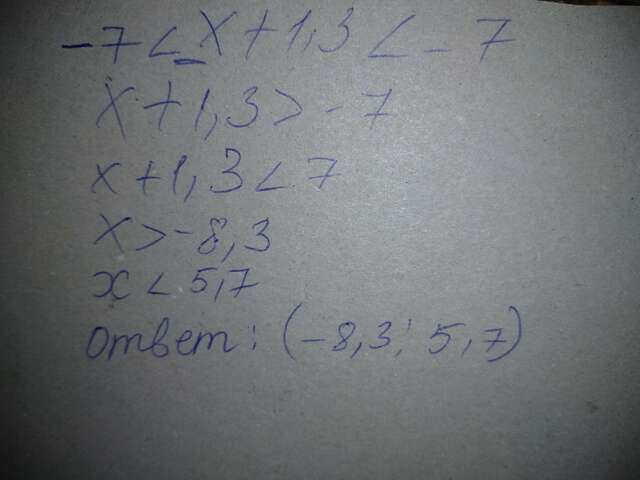 -7 < x + 1,3 < -7
x + 1,3 > -7
x + 1,3 < 7
x > -8,3
x < 5,7
ответ: (-8,3; 5,7)